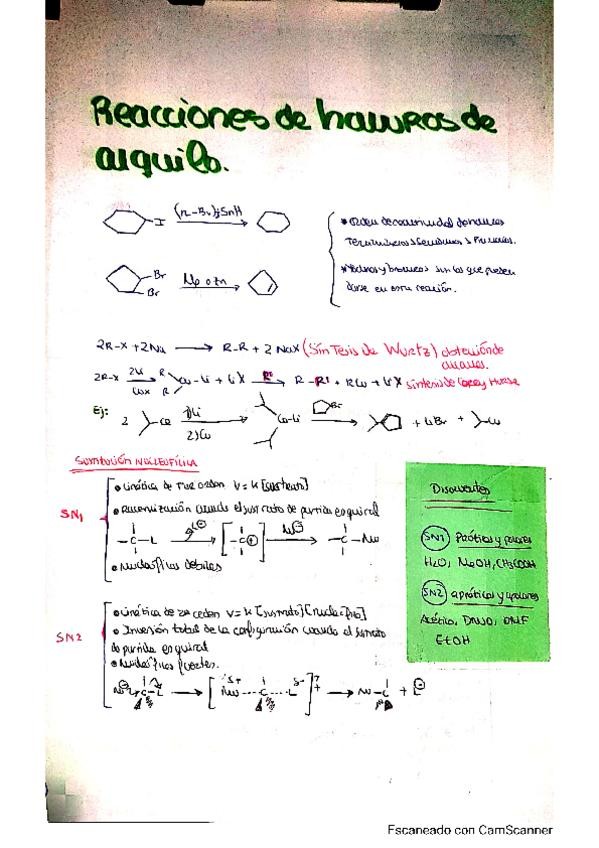 Reacciones de haluros de
alquilo.
I
(n-Bu)3SnH
Br
Br
Me o Zn
• Orden de reactividad
Terciarios > Secundarios > Primarios.
• Yoduros y bromuros son los que pueden
darse en esta reacción.
2R-X + 2Na → R-R + 2NaX (Síntesis de Wurtz) obtención de
alcanos.
2R-X R - R' + RCu + LiX síntesis de Corey House
Ej: 2 1) Li 2) Cu Cu-Li Br + LiBr +
SUSTITUCIÓN NUCLEOFÍLICA
SN1
• Cinética de 1er orden V = K [sustrato]
• Racemización cuando el sustrato de partida es quiral
-C-L -C⊕ Nu⊖ -C-Nu
• Nucleófilos débiles
SN2
• Cinética de 2º orden V = K [sustrato] [nucleófilo]
• Inversión total de la configuración cuando el sustrato
de partida es quiral
• Nucleófilos fuertes.
Nu C-L → [Nu---C---L]‡ → Nu-C + L⊖
Disolventes
SN1 Próticos y polares
H2O, MeOH, CH3COOH
SN2 apróticos y apolares
Acético, DMSO, DMF
EtOH
Escaneado con CamScanner